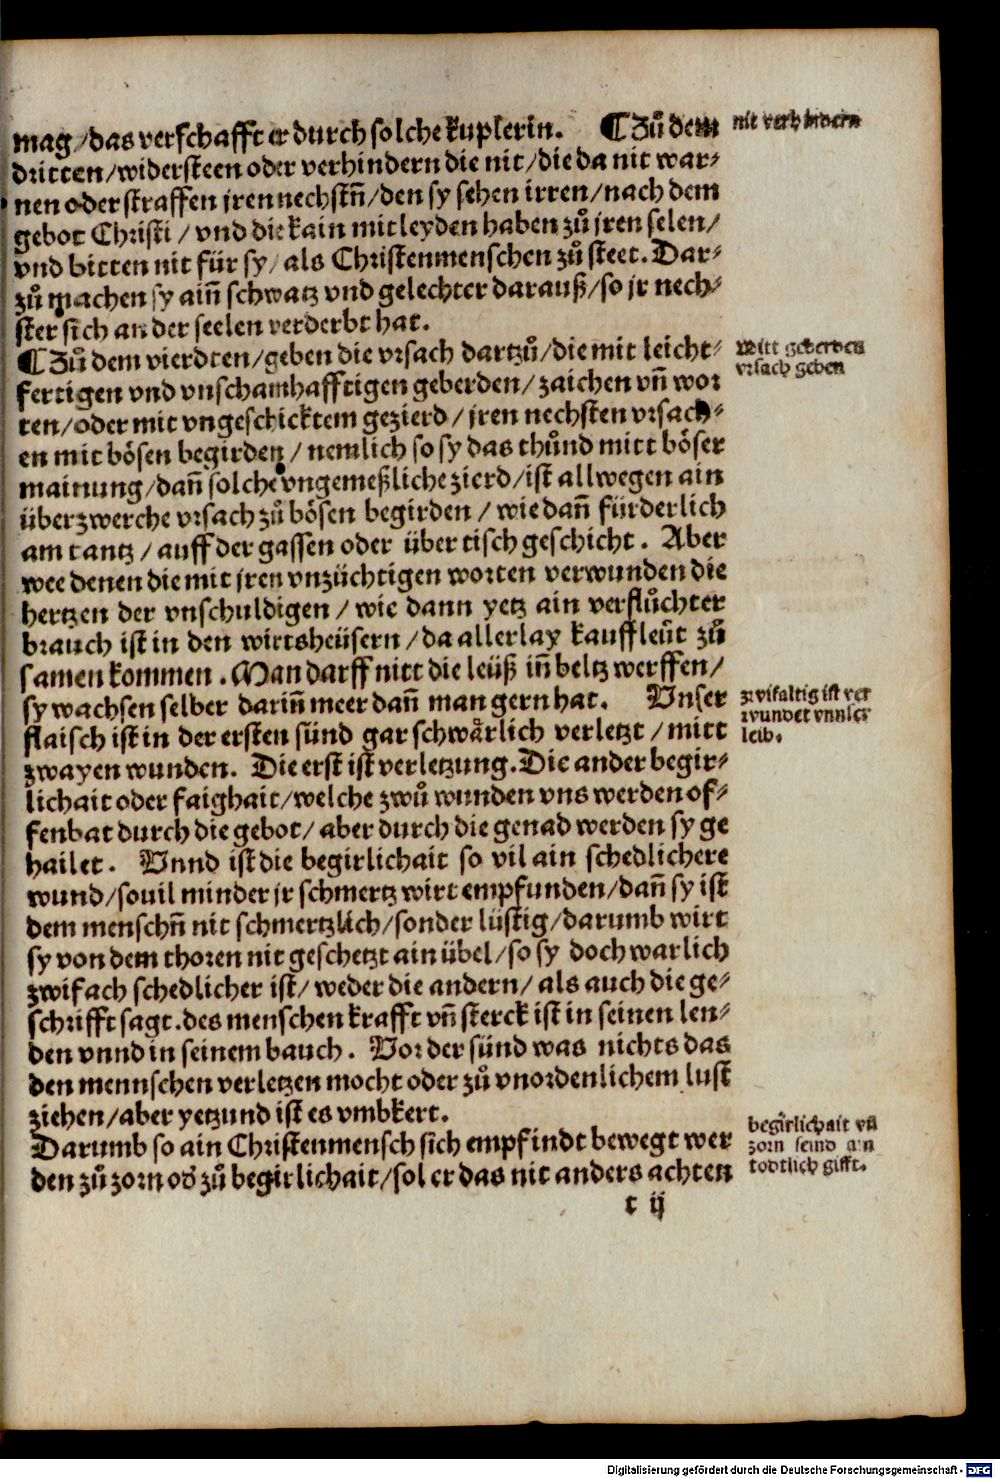 mag/das verschafft er durch solche kuplerin. ¶ Zuͦ dem
nit verhindern
dritten/widersteen oder verhindern die nit/die da nit war-
nen oder straffen jren nechstn̄/den sy sehen irren/nach dem
gebot Christi/vnd die kain mitleyden haben zuͦ jren selen/
vnd bitten nit für sy/als Christenmenschen zuͦ steet. Dar-
zuͦ machen sy ain̄ schwatz vnd gelechter darauß/so jr nech-
ster sich an der seelen verderbt hat.
¶ Zuͦ dem vierdten/geben die vrsach dartzuͦ/die mit leicht-
Mitt geberden
vrsach geben
fertigen vnd vnschamhafftigen geberden/zaichen vn̄ wor
ten/oder mit vngeschicktem gezierd/jren nechsten vrsach-
en mit bösen begirden/nemlich so sy das thuͦnd mitt böser
mainung/dan̄ solche vngemeßliche zierd/ist allwegen ain
überzwerche vrsach zuͦ bösen begirden/wie dan̄ fürderlich
am tantz/auff der gassen oder über tisch geschicht. Aber
wee denen die mit jren vnzüchtigen worten verwunden die
hertzen der vnschuldigen/wie dann yetz ain verfluͦchter
brauch ist in den wirtsheüsern/da allerlay kauffleüt zuͦ
samen kommen. Man darff nitt die leüß in̄ beltz werffen/
sy wachsen selber darin̄ meer dan̄ man gern hat. Vnser
zwifaltig ist ver
wundet vnnser
leib.
flaisch ist in der ersten sünd gar schwaͤrlich verletzt/mitt
zwayen wunden. Die erst ist verletzung. Die ander begir-
lichait oder faighait/welche zwuͦ wunden vns werden of-
fenbat durch die gebot/aber durch die genad werden sy ge
hailet. Vnnd ist die begirlichait so vil ain schedlichere
wund/souil minder jr schmertz wirt empfunden/dan̄ sy ist
dem menschn̄ nit schmertzlich/sonder lüstig/darumb wirt
sy von dem thoren nit geschetzt ain übel/so sy doch warlich
zwifach schedlicher ist/weder die andern/als auch die ge-
schrifft sagt. des menschen krafft vn̄ sterck ist in seinen len-
den vnnd in seinem bauch. Vor der sünd was nichts das
den mennschen verletzen mocht oder zuͦ vnordenlichem lust
ziehen/aber yetzund ist es vmbkert.
Darumb so ain Christenmensch sich empfindt bewegt wer
begirlichait vn̄
zorn seind ain
todtlich gifft.
den zuͦ zorn od' zuͦ begirlichait/sol er das nit anders achten
t ij
Digitalisierung gefördert durch die Deutsche Forschungsgemeinschaft - DFG